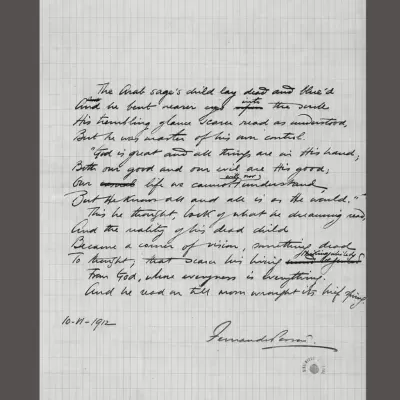 The Arab sage's child lay dead and blue'd
And he bent nearer eyes into the scroll
His trembling glance scarce read as understood,
But he was master of his own control.
"God is great and all things are in His hand;
Both our good and our evil are His good;
Our life we cannot, really now, understand,
But He knows all and all is as He would."
This he thought, back of what he dreaming read,
And the reality of his dead child
Became a corner of vision, something dead
To thought, that scarce his living
From God, whose everyness is everything.
And he read on till morn wrought its brief thing.
10-VI-1912
Fernando Pessoa.